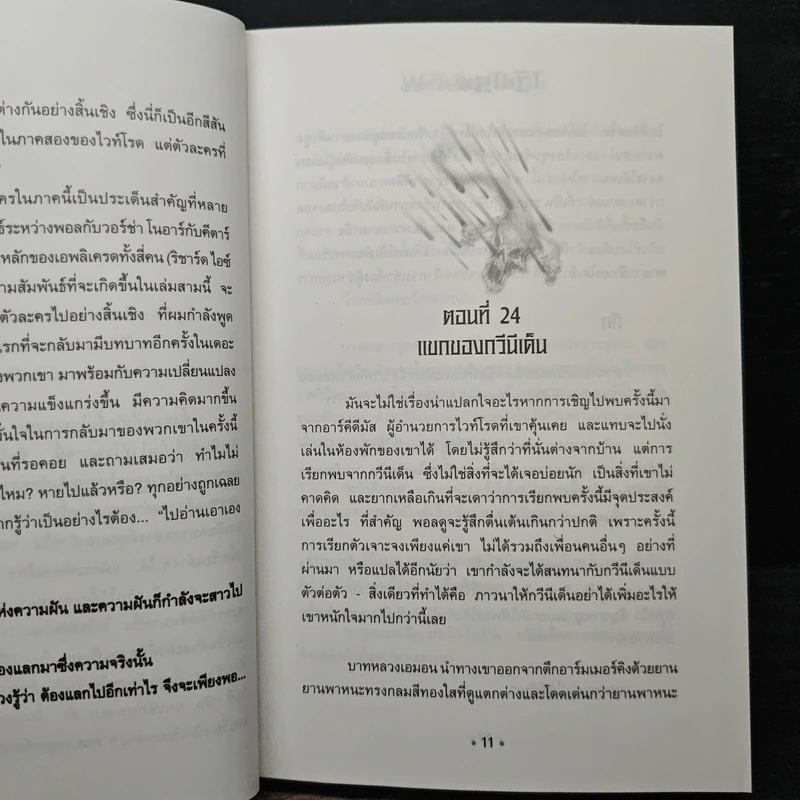 ต่างกันอย่างสิ้นเชิง ซึ่งนี่ก็เป็นอีกสีสัน
ในภาคสองของไวท์โรด แต่ตัวละครที่
ครในภาคนี้เป็นประเด็นสำคัญที่หลาย
ธ์ระหว่างพอลกับวอร์ช่า โนอาร์กับคีตาร์
หลักของเอพลิเครดทั้งสี่คน (ริชาร์ด ไอซ์
ามสัมพันธ์ที่จะเกิดขึ้นในเล่มสามนี้ จะ
ตัวละครไปอย่างสิ้นเชิง ที่ผมกำลังพูด
แรกที่จะกลับมามีบทบาทอีกครั้งในเดอะ
งพวกเขา มาพร้อมกับความเปลี่ยนแปลง
ความแข็งแกร่งขึ้น มีความคิดมากขึ้น
มั่นใจในการกลับมาของพวกเขาในครั้งนี้
นที่รอคอย และถามเสมอว่า ทำไมไม่
ไหม? หายไปแล้วหรือ? ทุกอย่างถูกเฉลย
ากรู้ว่าเป็นอย่างไรต้อง... "ไปอ่านเอาเอง
ห่งความฝัน และความฝันก็กำลังจะสาวไป
องแลกมาซึ่งความจริงนั้น
วงรู้ว่า ต้องแลกไปอีกเท่าไร จึงจะเพียงพอ...
ตอนที่ 24
แขกของกวีนีเด็น
มันจะไม่ใช่เรื่องน่าแปลกใจอะไรหากการเชิญไปพบครั้งนี้มา
จากอาร์คีดีมัส ผู้อำนวยการไวท์โรดที่เขาคุ้นเคย และแทบจะไปนั่ง
เล่นในห้องพักของเขาได้ โดยไม่รู้สึกว่าที่นั่นต่างจากบ้าน แต่การ
เรียกพบจากกวีนีเด็น ซึ่งไม่ใช่สิ่งที่จะได้เจอบ่อยนัก เป็นสิ่งที่เขาไม่
คาดคิด และยากเหลือเกินที่จะเดาว่าการเรียกพบครั้งนี้มีจุดประสงค์
เพื่ออะไร ที่สำคัญ พอลดูจะรู้สึกตื่นเต้นเกินกว่าปกติ เพราะครั้งนี้
การเรียกตัวเจาะจงเพียงแค่เขา ไม่ได้รวมถึงเพื่อนคนอื่นๆ อย่างที่
ผ่านมา หรือแปลได้อีกนัยว่า เขากำลังจะได้สนทนากับกวีนีเด็นแบบ
ตัวต่อตัว - สิ่งเดียวที่ทำได้คือ ภาวนาให้กวีนีเด็นอย่าได้เพิ่มอะไรให้
เขาหนักใจมากไปกว่านี้เลย
บาทหลวงเอมอน นำทางเขาออกจากตึกอาร์มเมอร์คิงด้วยยาน
ยานพาหนะทรงกลมสีทองใสที่ดูแตกต่างและโดดเด่นกว่ายานพาหนะ
• 11 •